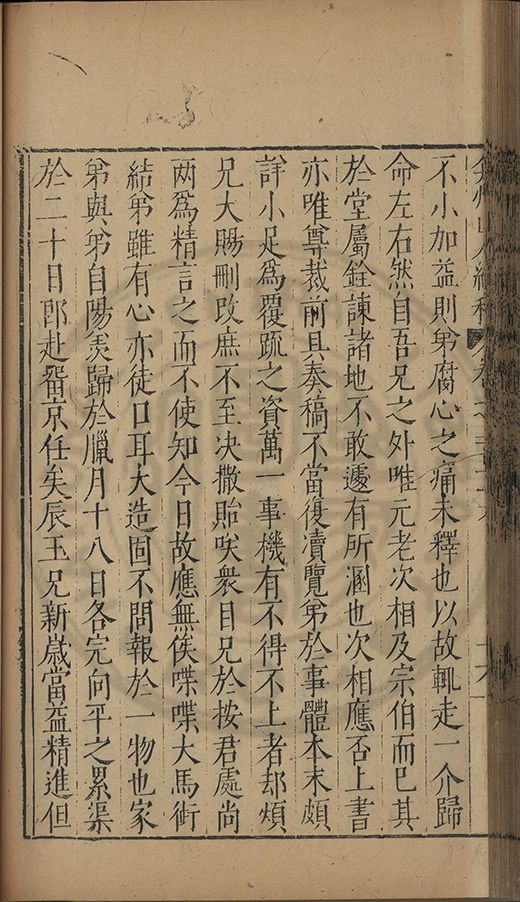 弇州山人續稿 卷之
不小加益則弟腐心之痛未釋也以故輒走一介歸
命左右然自吾兄之外唯元老次相及宗伯而已其
於堂屬銓諫諸地不敢遽有所溷也次相應否上書
亦唯尊裁前具奏稿不當復瀆覽弟於事體本末頗
詳小足爲覆疏之資萬一事機有不得不上者却煩
兄大賜刪改庶不至决撒貽咲衆目兄於按君處尚
两爲精言之而不使知今日故應無俟喋喋犬馬銜
結弟雖有心亦徒口耳大造固不問報於一物也家
弟與弟自陽羨歸於臘月十八日各完向平之累渠
於二十日郎赴留京任矣辰玉兄新歲當益精進但